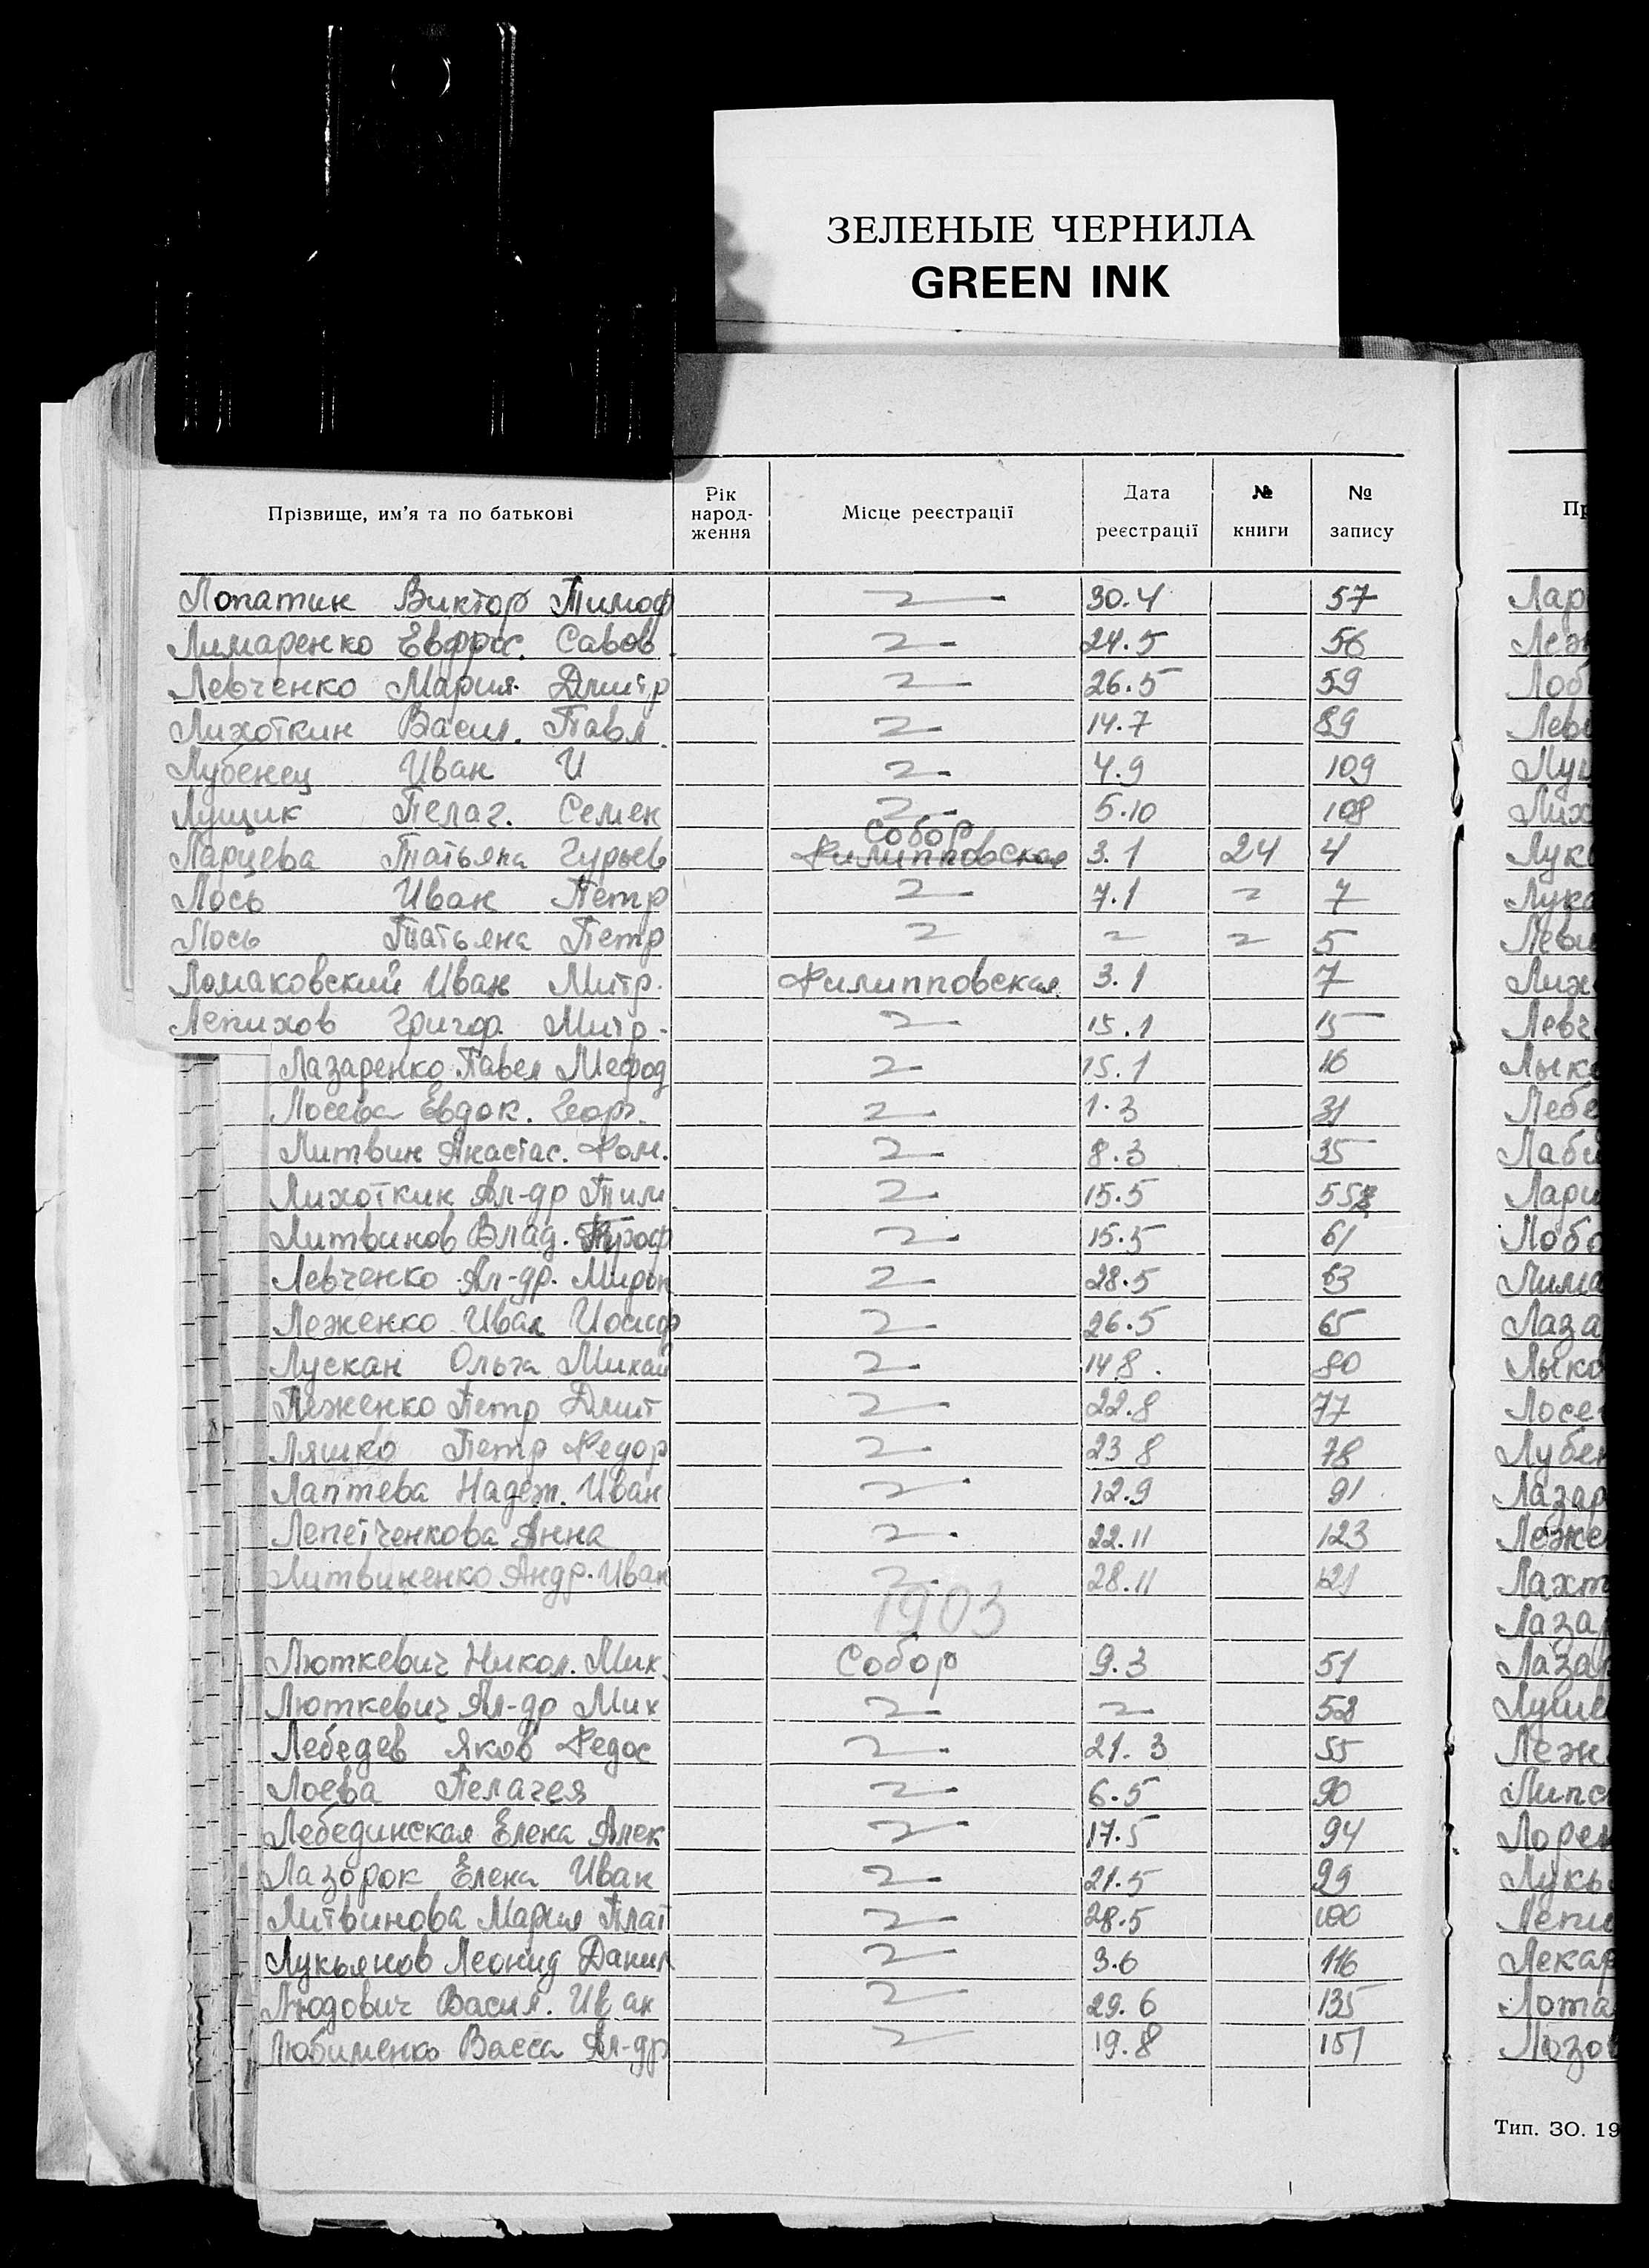 ЗЕЛЕНЫЕ ЧЕРНИЛА
GREEN INK
Прізвище, им’я та по батькові Рік народ-ження Місце реєстрації Дата реєстрації № книги № запису
Лопатин Виктор Тимоф 30.4 57
Лимаренко Евфрос. Савов. 24.5 56
Левченко Мария Дмитр 26.5 59
Лихоткин Васил. Павл. 14.7 89
Лубенец Иван И 4.9 109
Лущик Пелаг. Семен 5.10 108
Ларцева Татьяна Гурьев Собор Филипповская 3.1 24 4
Лось Иван Петр 7.1 7
Лось Татьяна Петр 5
Ломаковский Иван Митр. Филипповская 3.1 7
Лепихов Григор. Митр. 15.1 15
Лазаренко Павел Мефод 15.1 16
Лосева Евдок. Георг. 1.3 31
Литвин Анастас. Фом. 8.3 35
Лихоткин Ал-др Тим 15.5
Литвинов Влад. Троф 15.5 61
Левченко Ал-др. Мирон 28.5 63
Леженко Иван Иосиф 26.5 65
Лускан Ольга Михай 14 8. 80
Леженко Петр Дмит 22.8 77
Ляшко Петр Федор 23 8 78
Лаптева Надеж. Иван 12.9 91
Лепетченкова Анна 22.11 123
Литвиненко Андр. Иван 28.11 121
1903
Люткевич Никол. Мих. Собор 9.3 51
Люткевич Ал-др Мих 52
Лебедев Яков Федос 21.3 55
Лоева Пелагея 6.5 90
Лебединская Елена Алек 17.5 94
Лазорок Елена Иван 21.5 99
Литвинова Мария Плат 28.5 100
Лукьянов Леонид Данил 3.6 116
Людович Васил. Иван 29.6 135
Любименко Васса Ал-др 19.8 151
Тип. ЗО. 19